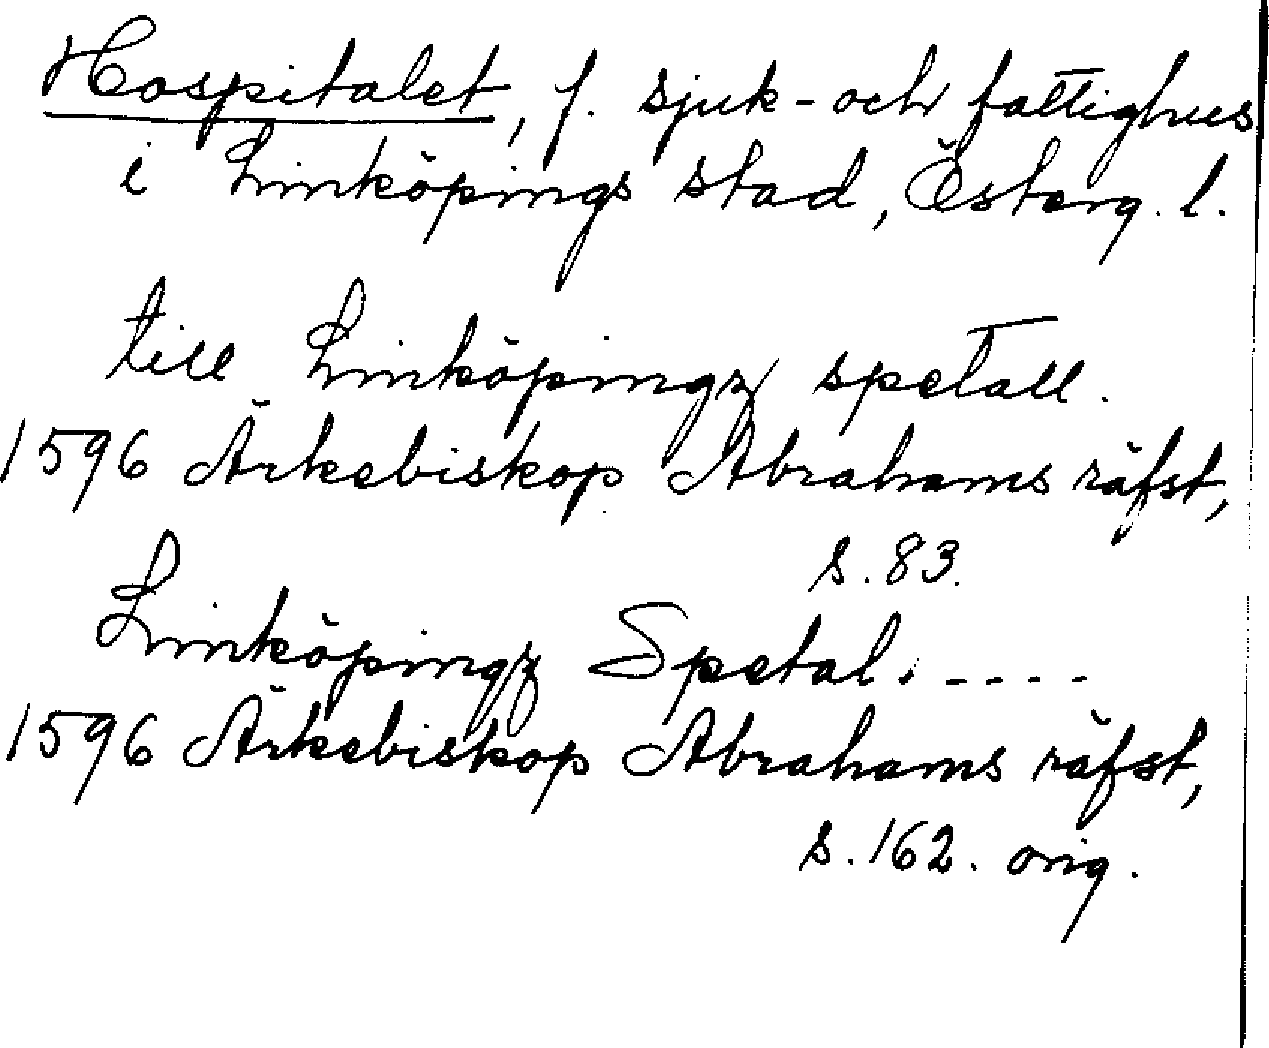 Hospitalet, f. sjuk- och fattighus
i Linköpings stad, Österg. l.
till Linköpingz spetall.
1596 Ärkebiskop Abrahams räfst,
s. 83.
Linköpingz Spetal. ----
1596 Ärkebiskop Abrahams räfst,
s. 162. orig.